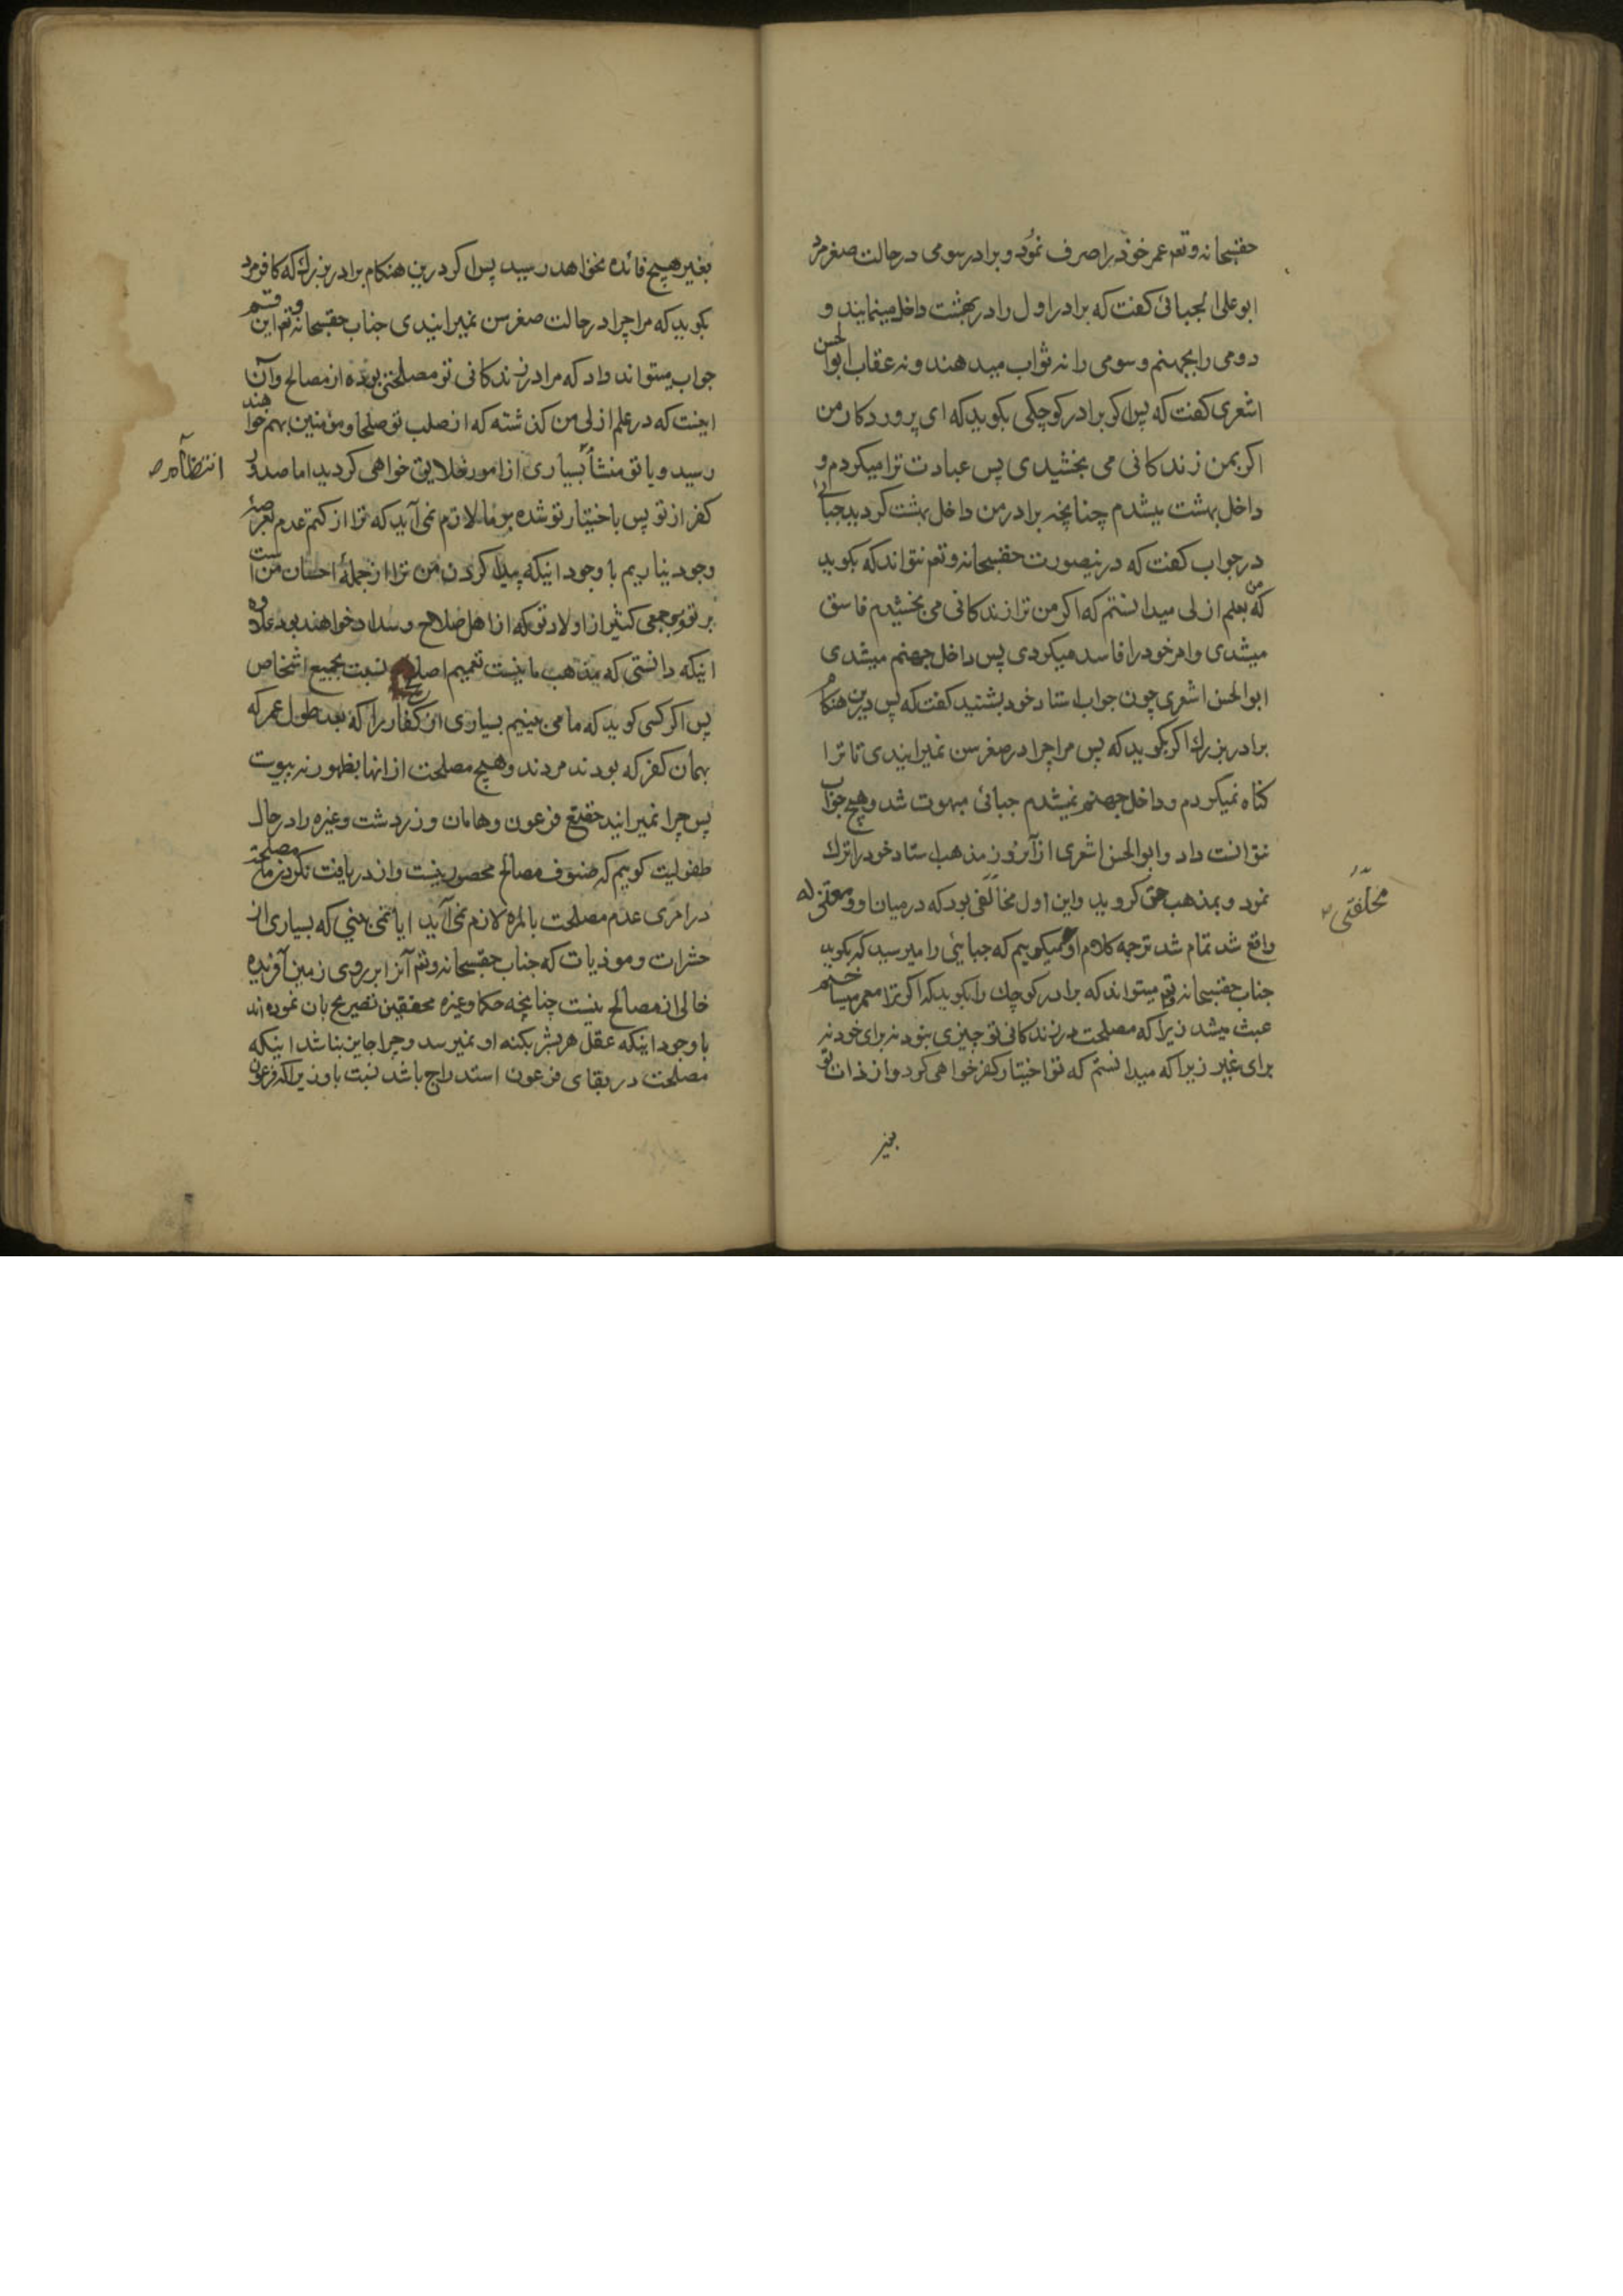 حقسبحانه وتعم عمر خود را صرف نمود و برادر سومی در حالت صغر مرد
ابوعلی الجبائی کفت که برادر اول را در بهشت داخل مینمایند و
دومی را بجهنم و سومی را نه ثواب میدهند و نه عقاب ابوالحسن
اشعری کفت که پس اکر برادر کوچکی بکوید که ای پروردکار من
اکر بمن زندکانی می بخشیدی پس عبادت ترا میکردم و
داخل بهشت میشدم چنانچه برادر من داخل بهشت کردید جبائی
در جواب کفت که درینصورت حقسبحانه وتعم نتواند که بکوید
که من بعلم ازلی میدانستم که اکر من ترا زندکانی می بخشیدم فاسق
میشدی و امر خود را فاسد میکردی پس داخل جهنم میشدی
ابوالحسن اشعری چون جواب استاد خود بشنید کفت که پس درین هنکام
برادر بزرك اکر بکوید که پس مرا چرا در صغر سن نمیرانیدی تا ترا
کناه نمیکردم و داخل جهنم نمیشدم جبائی مبهوت شد و هیچ جواب
نتوانست داد و ابوالحسن اشعری از آنروز مذهب استاد خود را ترك
نمود و بمذهب حق کروید و این اول مخالفی بود که در میان او و معتزله
واقع شد تمام شد ترجمه کلام او میکوییم که جبایئی را میرسید که بکوید
جناب حقسبحانه وتعم میتواند که برادر کوچك را بکوید که اکر ترا معمر میساختیم
عبث میشد زیرا که مصلحت در زندکانی تو چیزی نبود نه برای خود نه
برای غیر زیرا که میدانستم که تو اختیار کفر خواهی کرد و از ذات تو
بغیر
بغیر هیچ فائده نخواهد رسید پس اکر درین هنکام برادر بزرك که کافر مرد
بکوید که مرا چرا در حالت صغر سن نمیرانیدی جناب حقسبحانه وتعم این قسم
جواب میتواند داد که مرا در زندکانی تو مصلحتی بوده از مصالح و آن
اینست که در علم ازلی من کذشته که از صلب تو صلحا و مؤمنین بهم خواهند
رسید و یا تو منشأ بسیاری از امور خلایق خواهی کردید اما صدور
کفر از تو پس باختیار تو شده بر ما لازم نمی آید که ترا از کتم عدم بعرصهٔ
وجود نیاریم با وجود اینکه پیدا کردن من ترا از جملهٔ احسان من است
بر تو و بر جمعی کثیر از اولاد تو که از اهل صلاح و سداد خواهند بود علاوه
اینکه دانستی که مذهب ما نیست تعمیم اصلح نسبت بجمیع اشخاص
پس اکر کسی کوید که ما می بینیم بسیاری از کفار را که بعد طول عمر که
بهمان کفر که بودند مردند و هیچ مصلحت از انها بظهور نه پیوست
پس چرا نمیرانید حقتع فرعون و هامان و زردشت و غیره را در حال
طفولیت کوییم که صنوف مصالح محصور نیست و از دریافت نکردن ما مصلحة
در امری عدم مصلحت بالمره لازم نمی آید ایا نمی بینی که بسیاری از
حشرات و موذیات که جناب حقسبحانه وتعم آنرا بر روی زمین آفریده
خالی از مصالح نیست چنانچه حکما و غیره محققین تصریح بان نموده اند
با وجود اینکه عقل هر بشر بکنه او نمیرسد و چرا جایز نباشد اینکه
مصلحت در بقای فرعون استدراج باشد نسبت باو زیرا که فرعون